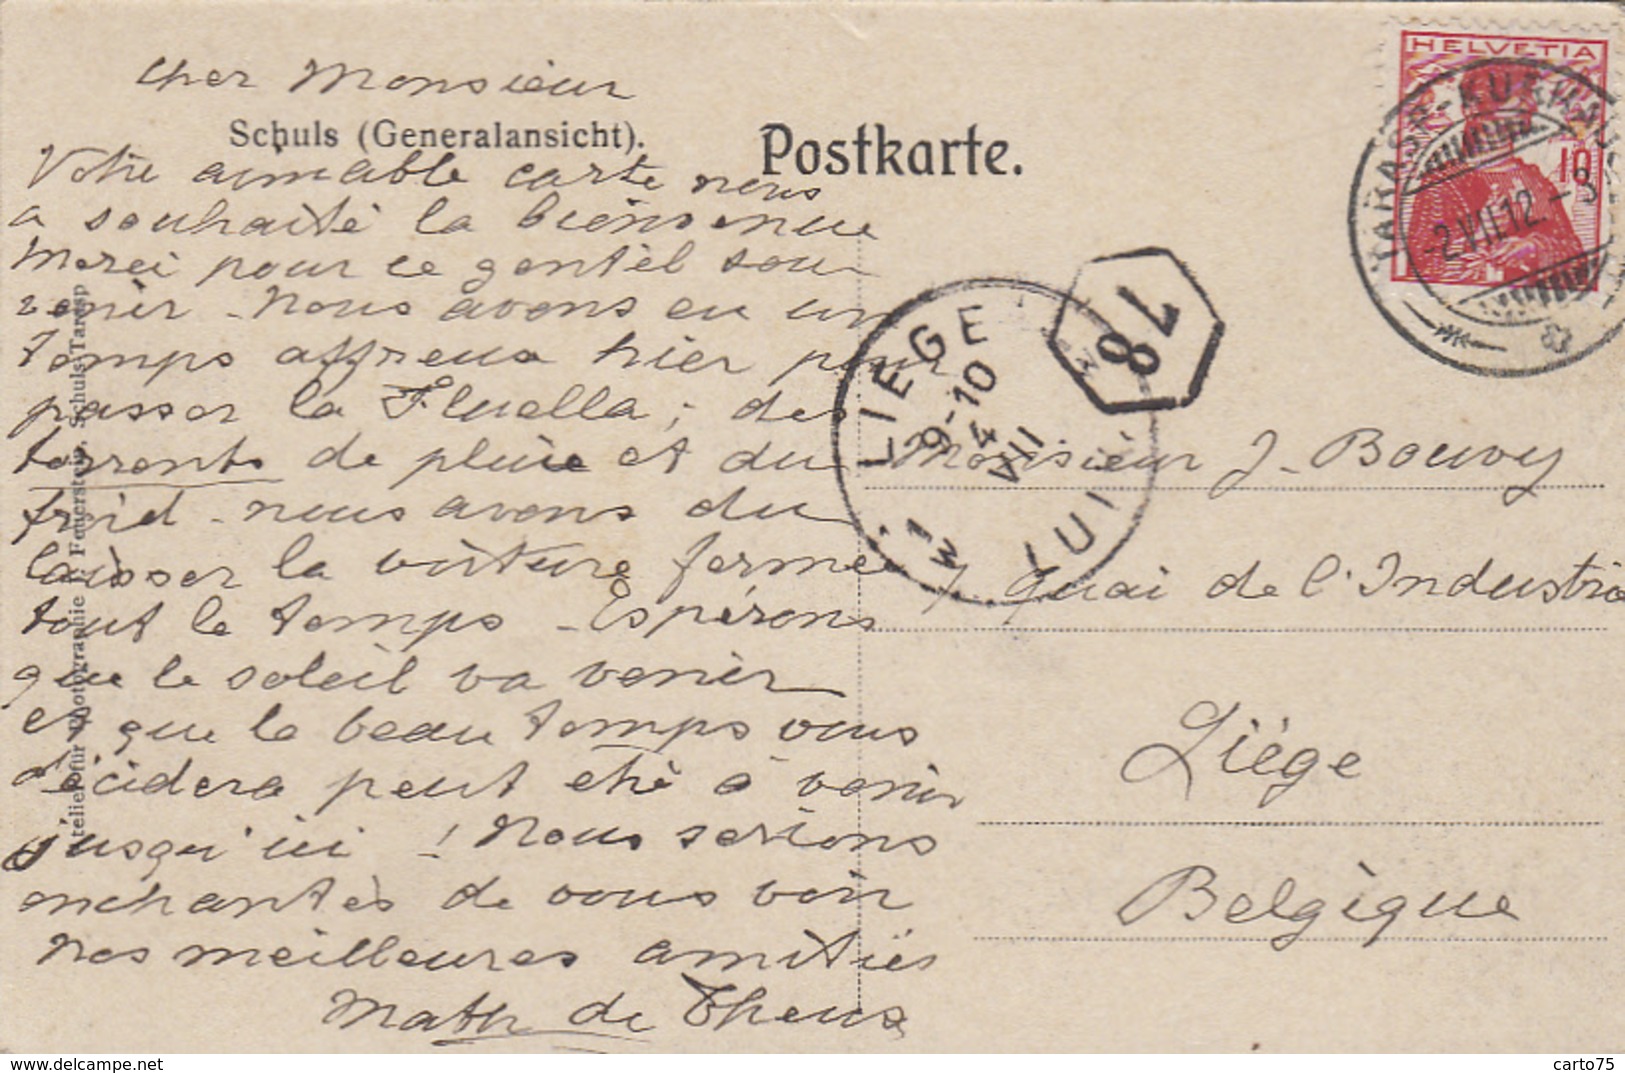 Cher Monsieur
Schuls (Generalansicht).
Postkarte.
Votre aimable carte nous
a souhaité la bienvenue
Merci pour ce gentil sou-
venir - Nous avons eu un
temps affreux hier pour
passer la Fluella ; des
torrents de pluie et du
froid - nous avons du
laisser la voiture fermée
tout le temps - Espérons
que le soleil va venir
et que le beau temps vous
décidera peut etre à venir
jusqu'ici ! Nous serions
enchantés de vous voir
Nos meilleures amitiés
Math de Theux
Atelier für Photographie J. Feuerstein, Schuls-Tarasp
HELVETIA
10
TARASP-KURHAUS
-2.VII.12.-3
LIEGE
9-10
4
VII
78
Monsieur J. Bouvy
7 Quai de l'Industrie
Liége
Belgique
www.delcampe.net
carto75